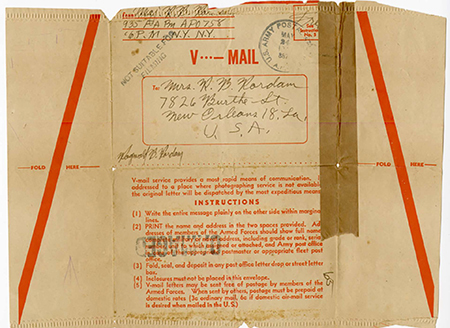 935 F/A Bn APO 758
% P.M. N.Y. N.Y.
NOT SUITABLE FOR
FILMING
U.S. ARMY POST
No. 3
V···-MAIL
To: Mrs. R. B. Rordam
7826 Burthe St.
New Orleans 18, La.
U. S. A.
Raymond B. Rordam
V-mail service provides a most rapid means of communication.
addressed to a place where photographing service is not available
the original letter will be dispatched by the most expeditious means
FOLD HERE
FOLD HERE
INSTRUCTIONS
(1) Write the entire message plainly on the other side within margin
lines.
(2) PRINT the name and address in the two spaces provided. Ad
dresses of members of the Armed Forces should show full name
address, including grade or
which
or attached, and Army post office
postmaster or appropriate fleet post
office.
(3) Fold, seal, and deposit in any post office letter drop or street letter
box.
(4) Inclosures must not be placed in this envelope.
(5) V-mail letters may be sent free of postage by members of the
Armed Forces. When sent by others, postage must be prepaid at
domestic rates (3c ordinary mail, 6c if domestic air-mail service
is desired when mailed in the U. S.)